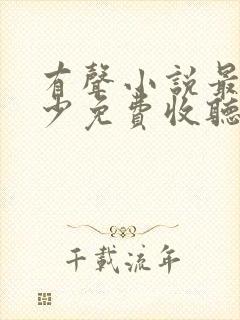 有聲小說最
少免費收聽
千載流年